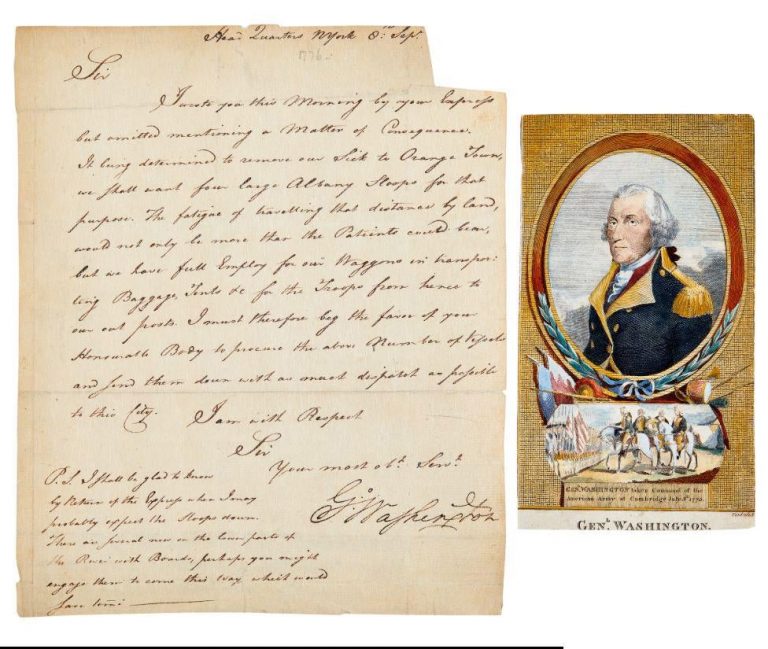 Head Quarters NYork 8th Sepr.
1776.
Sir
I wrote you this Morning by your Express
but omitted mentioning a Matter of Consequence.
It being determined to remove our Sick to Orange Town,
we shall want four large Albany Sloops for that
purpose. The fatigue of travelling that distance by land,
would not only be more than the Patients could bear,
but we have full Employ for our Waggons in transpor-
ting Baggage, Tents &c for the Troops from hence to
our out posts. I must therefore beg the favor of your
Honourable Body to procure the above Number of Vessels
and send them down with as much dispatch as possible
to this City. I am with Respect
Sir
Your most obt. Servt.
Go: Washington
P.S. I shall be glad to know
by Return of the Express when I may
probably expect the Sloops down.
There are several now in the lower parts of
the River with Boards, perhaps you might
engage them to come this way which would
save time
GENL. WASHINGTON takes Command of the
American Army at Cambridge July 3d. 1775.
GENL. WASHINGTON.